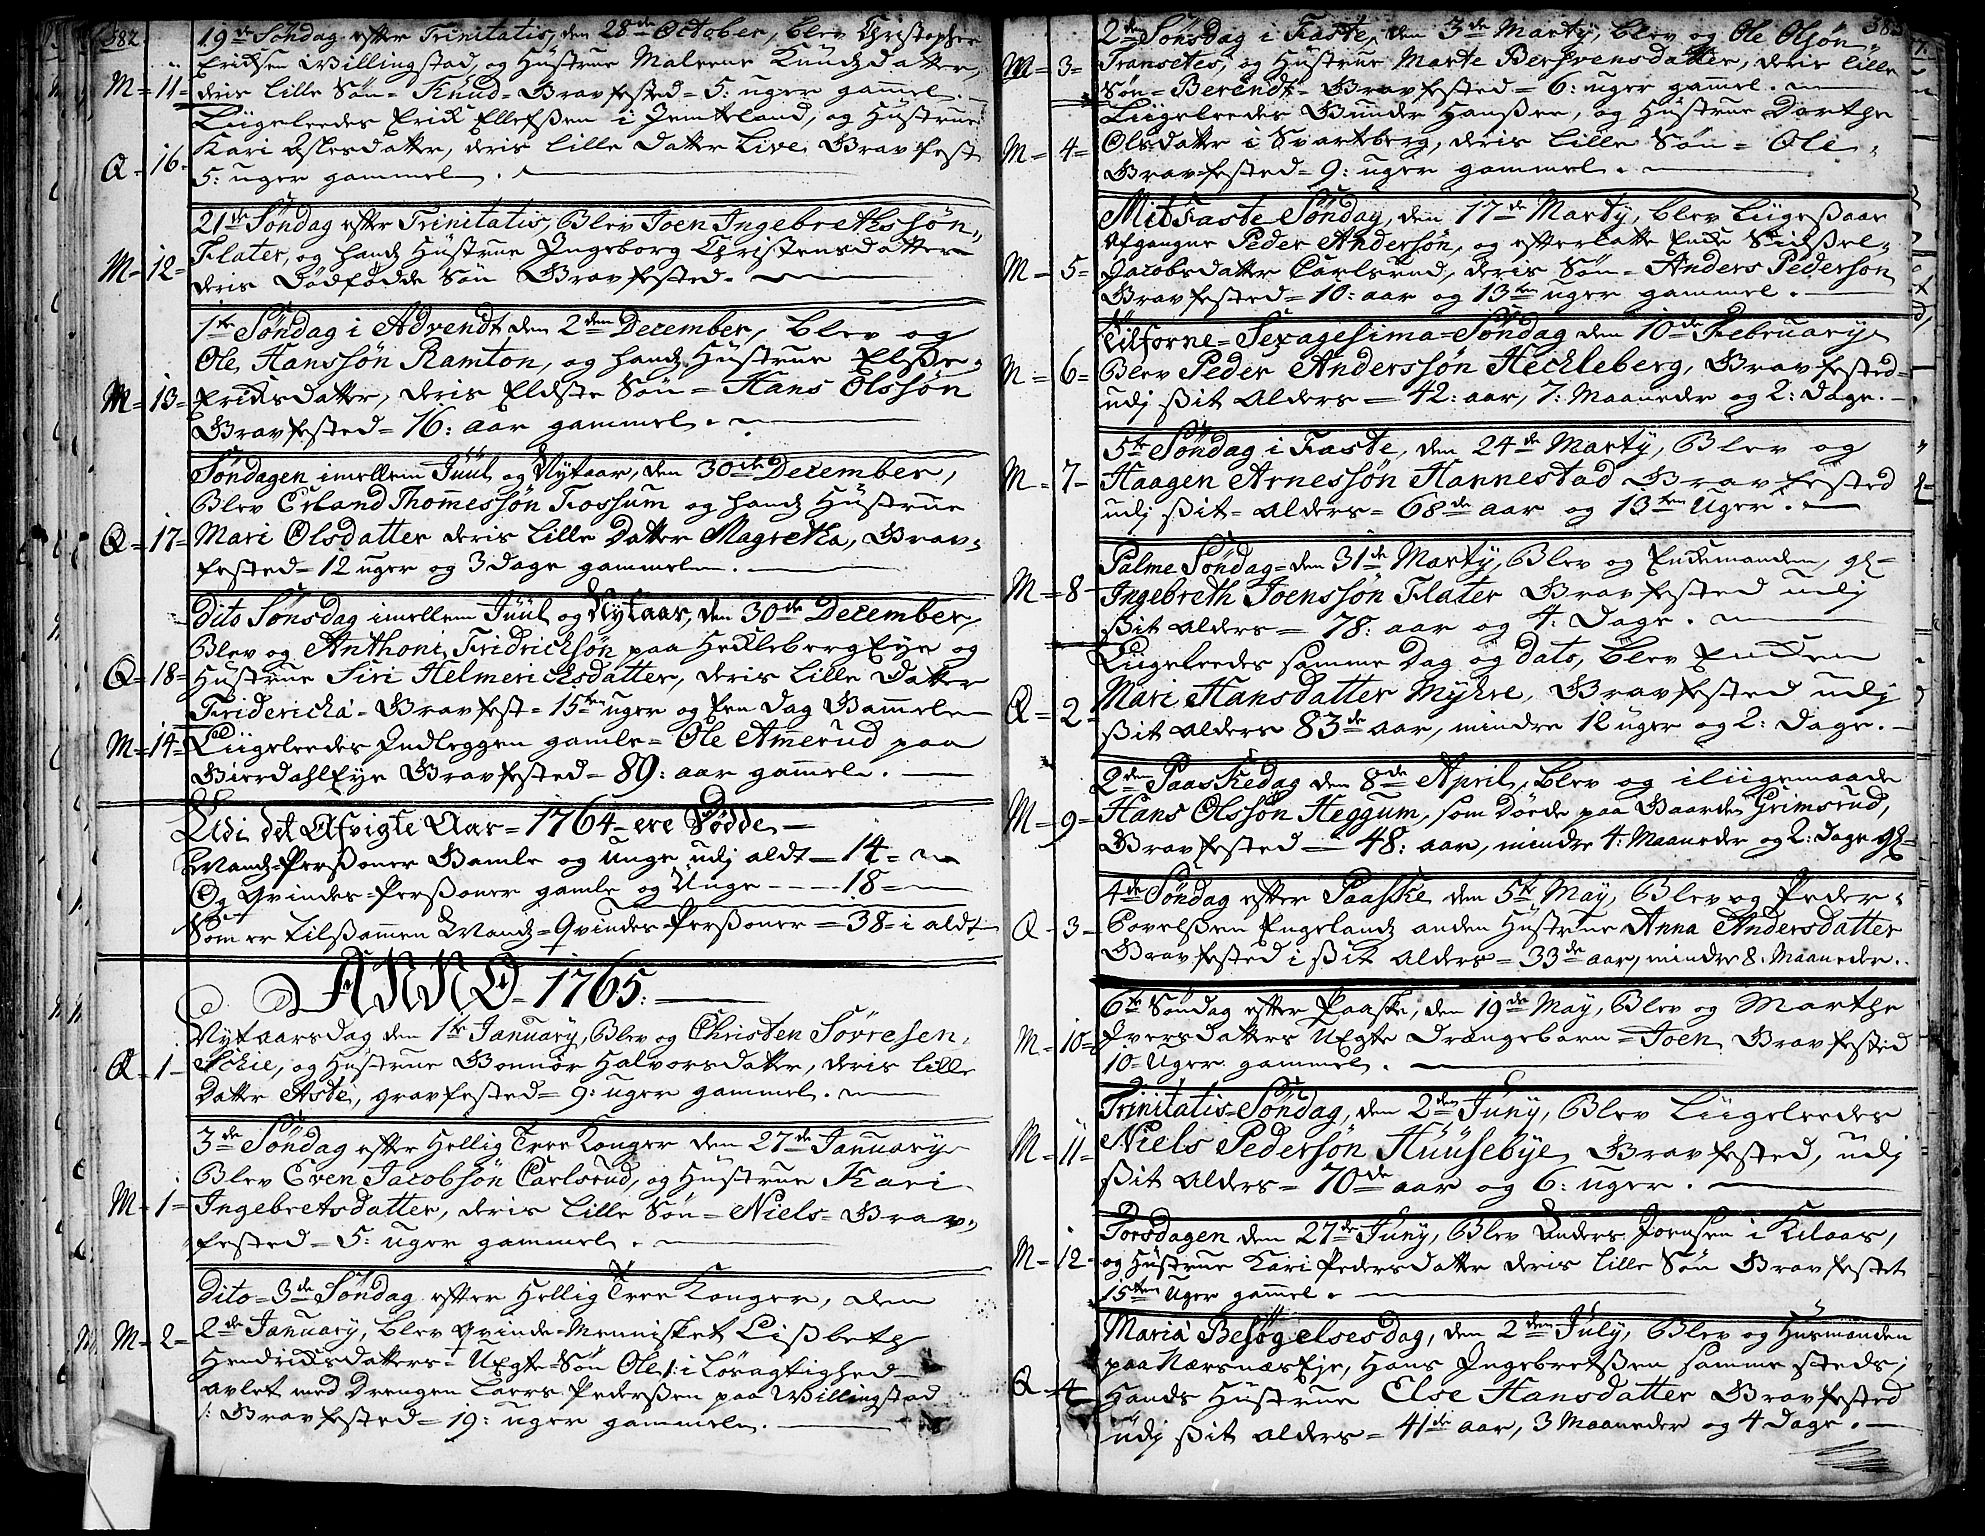 382.
19de Søndag efter Trinitatis, den 28de October, blev Christopher
Ericksen Willingstad, og Hustrue Malene Knudsdatter,
M = 11 = deris lille Søn = Knud = Gravfested = 5: uger gammel.
Liigeleedes Erick Ellefssen i Jemteland, og Hustrue
Q = 16 = Kari Aslesdatter, deris lille Datter Live Gravfest
5: uger gammel.
21de Søndag efter Trinitatis, Blev Joen Ingebrethssøn
M = 12 = Flater, og hands Hustrue Ingeborg Christensdatter
deris Dødfødde Søn Gravfested.
1te Søndag i Advendt den 2den December, blev og
Ole Hanssøn Ramton, og hands Hustrue Elsse
M = 13 = Ericksdatter, deris Eldste Søn = Hans Olssøn
Gravfested = 16: aar gammel.
Søndagen imellem Juul og Nytaar, den 30de December,
Blev Erland Thomessøn Fossum og hands Hustrue
Q = 17 = Mari Olsdatter deris lille Datter Magretha, Grav=
fested = 12 uger og 3 Dage gammel.
Dito Sønsdag imellem Juul og Nytaar, den 30de December,
Blev og Anthoni Fridrichsøn paa Heckleberg Eye og
Q = 18 = Hustrue Siri Helmericksdatter, deris lille Datter
Fridericka = Gravfest = 15ten uger og Een Dag Gammel
M = 14 = Liigeleedes Indleggen gamle = Ole Amerud paa
Bierdahl Eye Gravfested = 89: aar gammel.
Udi det Afvigte Aar = 1764 = ere Dødde
Mands=Perssoner Gamle og Unge udj aldt = 14 =
Og Qvindes=Perssoner gamle og Unge - - - - 18 =
Som er Tilssammen Mands=Qvindes Perssoner = 38 = i aldt
ANNO = 1765:
Nytaarsdag den 1te January, Blev og Christen Sørresen
Q = 1 = Schie, og Hustrue Gonnor Halvorsdatter, deris lille
Datter Aste, gravfested = 9: uger gammel.
3de Søndag efter Hellig Tree Konger den 27de January
Blev Even Jacobsøn Carlsrud, og Hustrue Kari
M = 1 = Ingebretsdatter, deris lille Søn = Niels = Grav=
fested = 5: uger gammel.
Dito = 3de Søndag efter Hellig Tree Konger, den
M = 2 = 2de January, blev Qvinde=Mennisket Lissbeth
Hendricksdatters = Uegte=Søn Ole /: i Løsagtighed
avlet med Drengen Laers Pederssen paa Willingstad
:/ Gravfested = 19: uger gammel.
383
2de Sønsdag i Faste, den 3de Marty, blev og Ole Olsøn
M = 3 = Transetes, og Hustrue Marte Berhvensdatter, deris lille
Søn = Berendt = Gravfested = 6: uger gammel.
Liigeleedes Gunder Hanssen, og Hustrue Dorthe
M = 4 = Olsdatter i Svartberg, deris lille Søn = Ole
Gravfested = 9: uger gammel.
Mitfaste Søndag, den 17de Marty, blev Liigessaa
Afgangne Peder Andersøn, og efterlatte Encke Sidssel
M = 5 = Jacobsdatter Carlsrud, deris Søn = Anders Pedersøn
Gravfested = 10: aar og 13ten uger gammel.
Tilforne = Sexagesima = Søndag den 10de February
M = 6 = Blev Peder Anderssøn Heckleberg, Gravfested
udj ssit Alders = 42: aar, 7: Maaneder og 2: Dage.
5te Søndag i Faste, den 24de Marty, Blev og
M = 7 = Haagen Arnessøn Hannestad Gravfested
udj ssit = Alders = 68de aar og 13ten Uger.
Palme Søndag = den 31de Marty, Blev og Enckemanden, gl=
M = 8 = Ingebreth Joenssøn Flater Gravfested udj
ssit Alders = 78: aar og 4: Dage.
Liigeleedes samme Dag og dato, blev Encken
Q = 2 = Mari Hansdatter Myhre, Gravfested udj
ssit Alders 83de aar, mindre 12 uger og 2: Dage.
2den Paaskedag den 8de April, blev og iligemaade
M = 9 = Hans Olssøn Heggum, som Døede paa Gaarden Grimsrud,
Gravfested = 48: aar, mindre 4: Maaneder og 2: Dage gl=
4de Søndag efter Paasske den 5te May, Blev og Peder
Q = 3 = Povelssen Engelands anden Hustrue Anna Andersdatter
Gravfested i ssit Alders = 33de aar, mindre 8. Maaneder.
6te Søndag efter Paaske, den 19de May, Blev og Marthe
M = 10 = Iversdatters Uegte Drængebarn = Joen Gravfested
10 Uger gammel.
Trinitatis = Søndag, den 2den Juny, Blev Liigeleedes
M = 11 = Niels Pedersøn Huusebye, Gravfested, udj
ssit Alders = 70de aar og 6: uger.
Torsdagen den 27de Juny, Blev Anders Joensen i Kilaas,
M = 12 = og Hustrue Kari Pedersdatter deris lille Søn Gravfestet
15ten Uger gammel.
Maria Besøgelsesdag, den 2den July, Blev og Husmanden
paa Nærsnæs Eje, Hans Ingebretssen samme steds,
Q = 4 = Hands Hustrue Else Hansdatter Gravfested
udj ssit Alders = 41de aar, 3 Maaneder og 4 Dage.